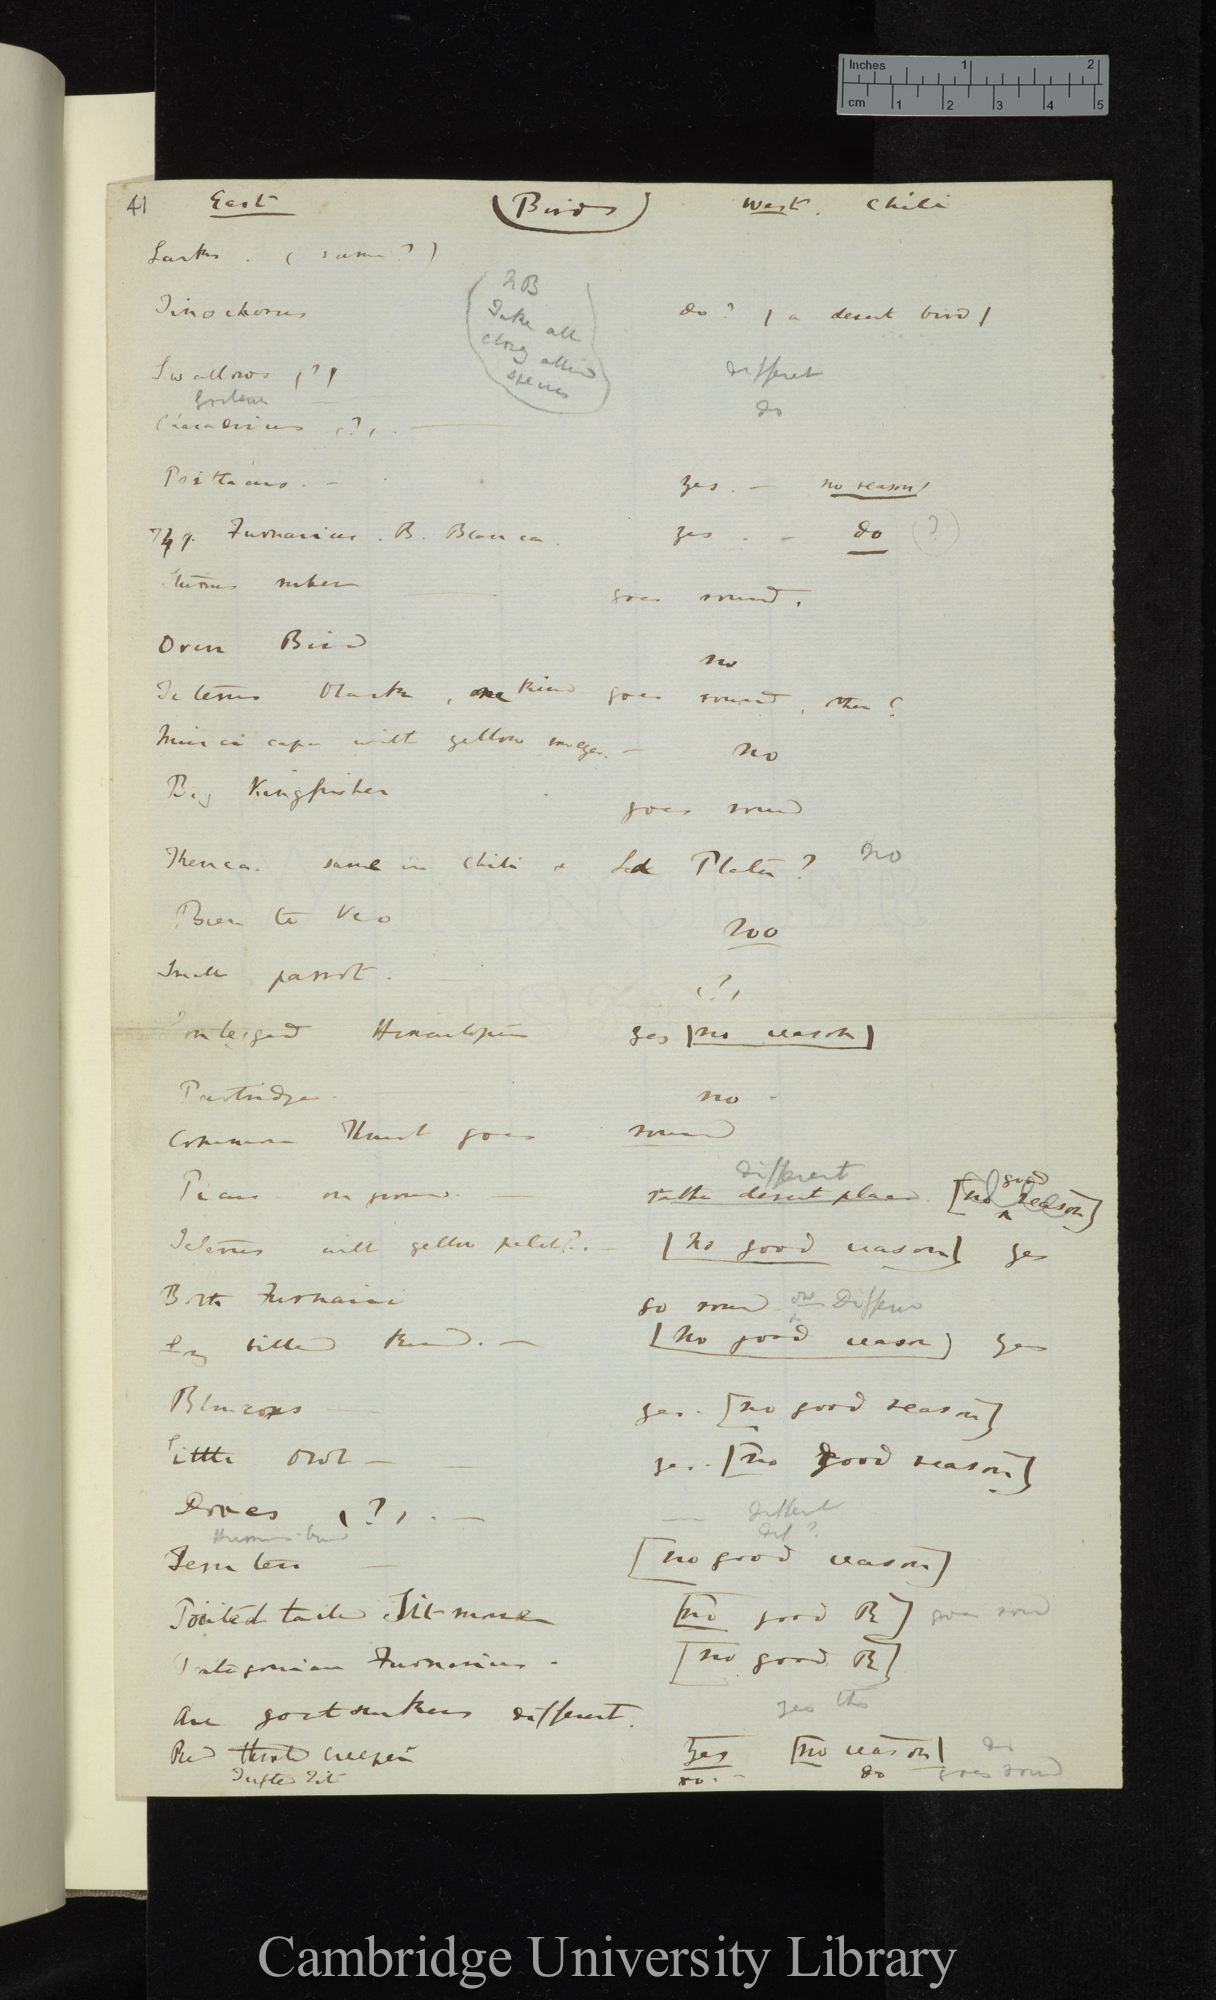 Inches 1 2
cm 1 2 3 4 5
41 East (Birds) West. Chili
Larks. (same?)
NB
Take all
closely allied
species
Tinochorus do? (a desert bird)
Swallows (?) different
do
Charadrius (?).
Psittacus. — yes. — no reason!
Furnarius. B. Blanca. yes. — do (?)
Sturnus ruber goes round.
Oven Bird no
Icterus black, one kind goes round, other?
Muscicapa with yellow — no
Big Kingfisher goes round
Thenca. same in Chili & La Plata? No
Bien te Veo Noo
Small parrot. (?)
Long legged Himantopus yes [no reason]
Partridge. no -
Common Thrush goes round
different
Picus on ground. — rather desert places [no good reason]
Icterus with yellow — [No good reason] yes
Both Furnarii go round or Differ
Long billed Kind. — [No good reason] yes
yes. [no good reason]
Little owl — yes. [no good reason]
Doves (?). — different
Humming-bird dif?
[no good reason]
Pointed tailed Tit-mouse [no good R] goes round
Patagonian Furnarius. [no good R]
Are goatsuckers different. yes
Red throated creeper Yes [no reason] do
Tufted Tit do. — do goes round
Cambridge University Library